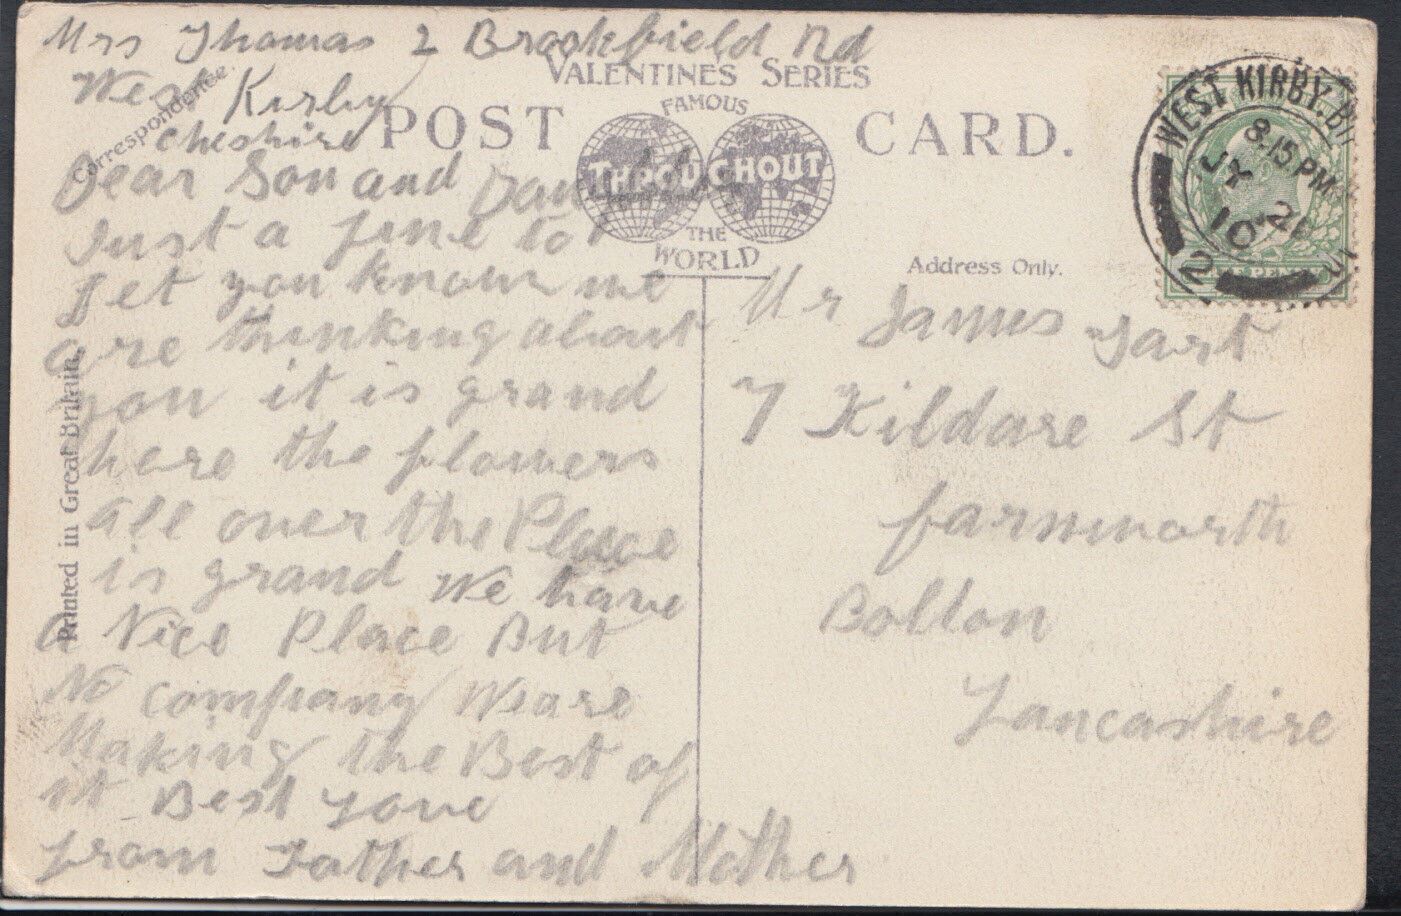 Mrs Thomas 2 Brookfield Rd
West Kirby
Cheshire
Correspondence.
VALENTINES SERIES
FAMOUS
THROUGHOUT
THE
WORLD
POST CARD.
Dear Son and
Just a fine to
Let you know we
are thinking about
you it is grand
here the flowers
all over the Place
is grand We have
a Nice Place But
No company We are
Making the Best of
it Best Love
from Father and Mother
Printed in Great Britain.
Address Only.
Mr James
7 Kildare St
farnworth
Bolton
Lancashire
WEST KIRBY.
8.15 PM
10
2